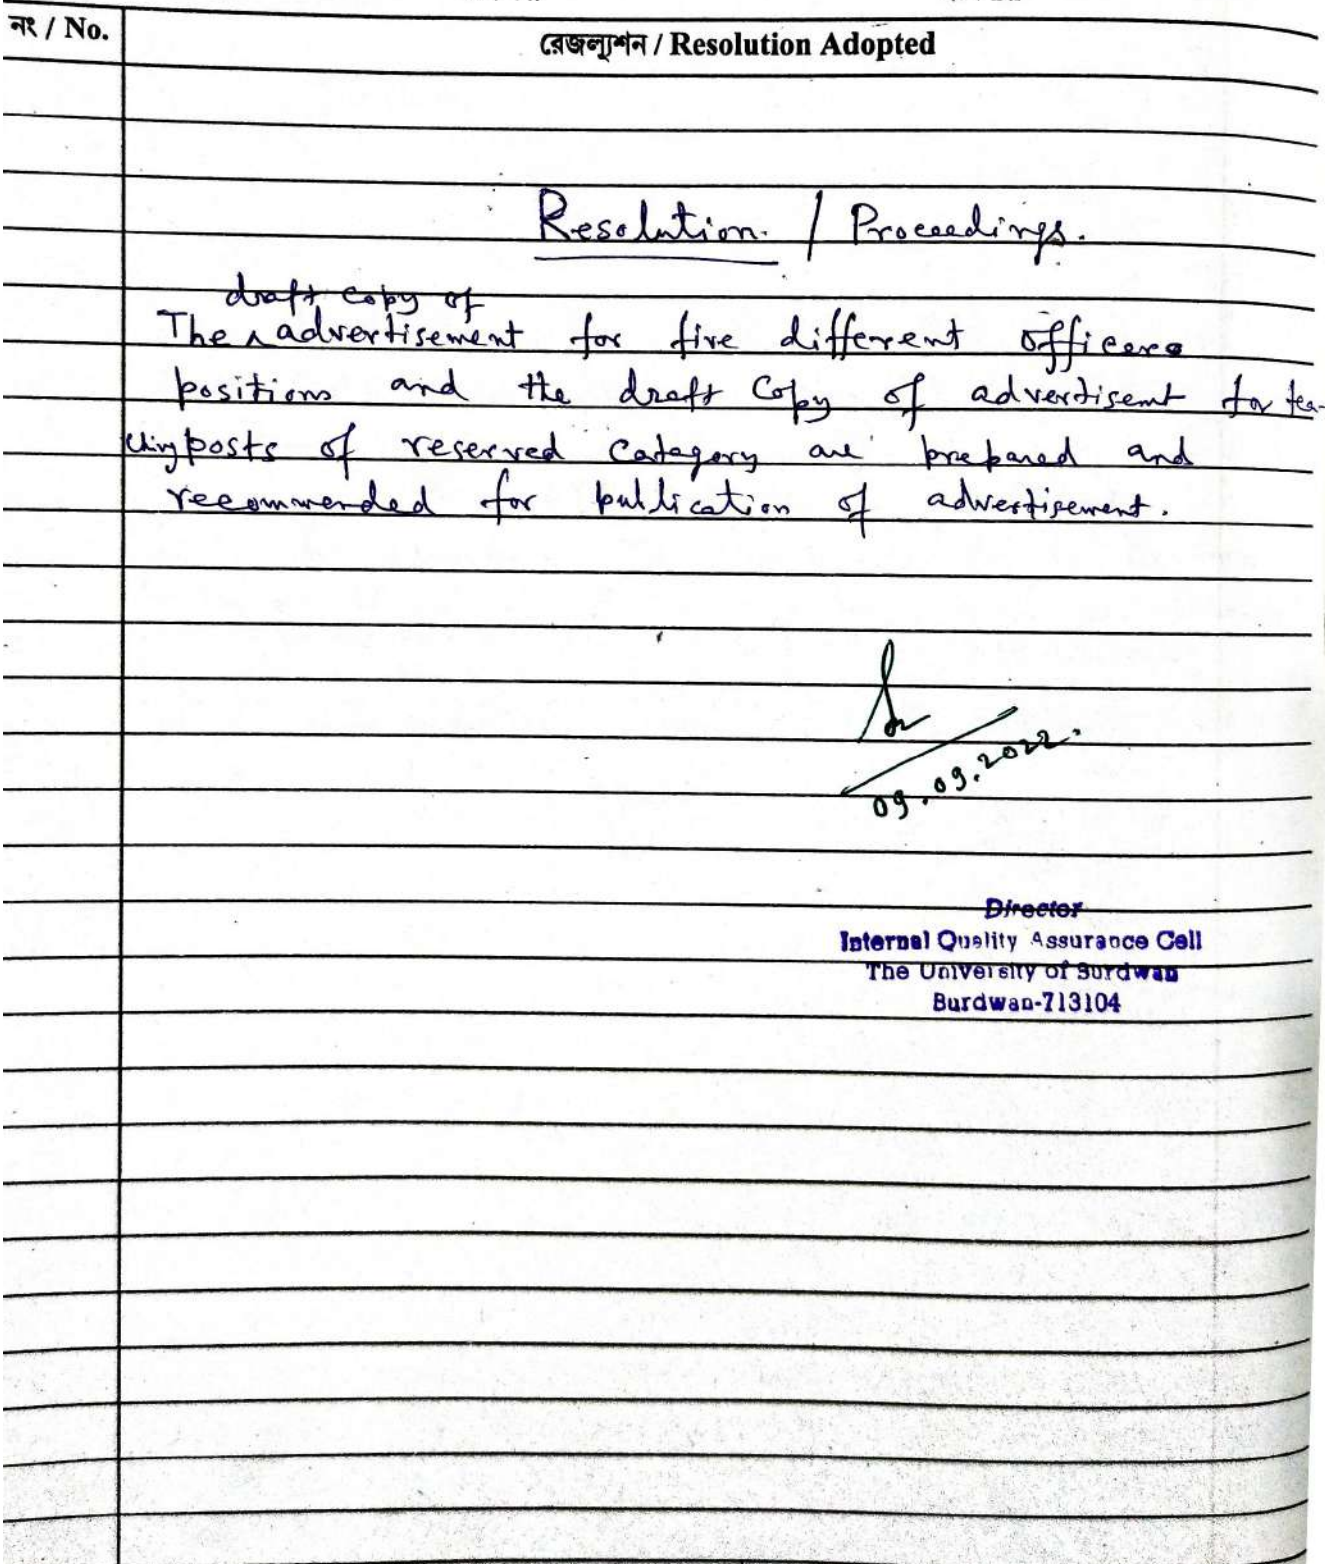 নং / No.
রেজল্যুশন / Resolution Adopted
Resolution. / Proceedings.
draft copy of
The ^ advertisement for five different officers
positions and the draft Copy of advertisemt for tea-
ching posts of reserved Category are prepared and
recommended for publication of advertisement.
09.09.2022.
Director
Internal Quality Assurance Cell
The University of Burdwan
Burdwan-713104